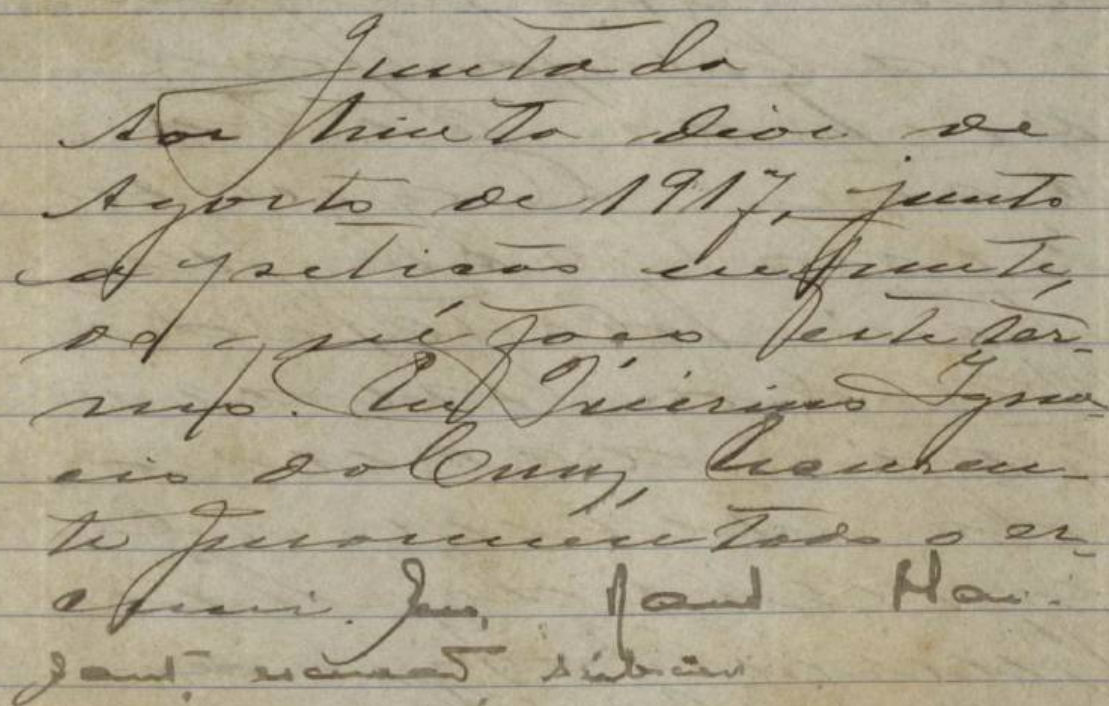 Juntada
Aos trinta dias de
Agosto de 1917, junto
a petição em frente,
do que faço este ter-
mo. Eu Quirino Igna-
cio da Cruz, Escreven-
te Juramentado o es-
crevi. Eu, Raul
escrivão, subscrevi